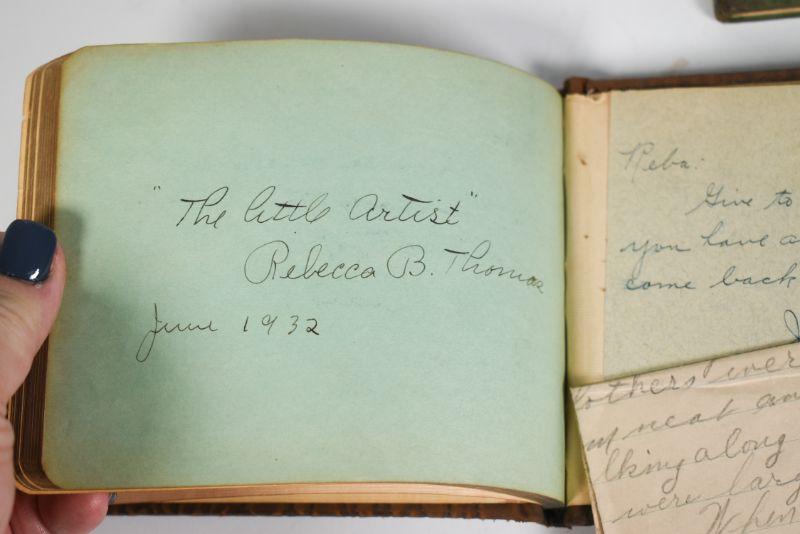 "The little Artist"
Rebecca B. Thomas
June 1932
Reba:
Give to
you have a
come back
others were
neat an
lking along
were larg
When